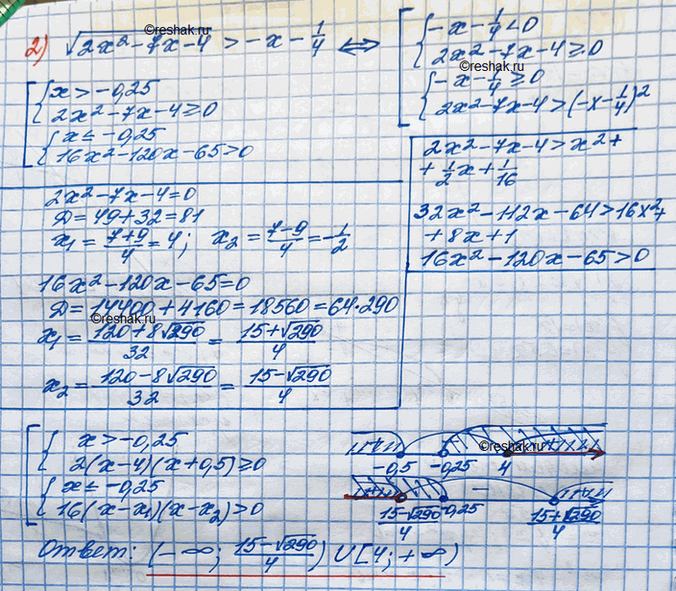 ©reshak.ru
2) √(2x²-7x-4) > -x - 1/4 ⇔ [ { -x - 1/4 < 0
2x²-7x-4 ≥ 0
{ -x - 1/4 ≥ 0
2x²-7x-4 > (-x - 1/4)²
©reshak.ru
[ { x > -0,25
2x²-7x-4 ≥ 0
{ x ≤ -0,25
16x²-120x-65 > 0
2x²-7x-4 > x² +
+ 1/2 x + 1/16
32x²-112x-64 > 16x² +
+ 8x + 1
16x²-120x-65 > 0
2x²-7x-4 = 0
D = 49+32 = 81
x₁ = (7+9)/4 = 4; x₂ = (7-9)/4 = -1/2
16x²-120x-65 = 0
D = 14400+4160 = 18560 = 64·290
©reshak.ru
x₁ = (120+8√290)/32 = (15+√290)/4
x₂ = (120-8√290)/32 = (15-√290)/4
[ { x > -0,25
2(x-4)(x+0,5) ≥ 0
{ x ≤ -0,25
16(x-x₁)(x-x₂) > 0
©reshak.ru
-0,5 -0,25 4
(15-√290)/4 -0,25 (15+√290)/4
Ответ: (-∞; (15-√290)/4) ∪ [4; +∞)